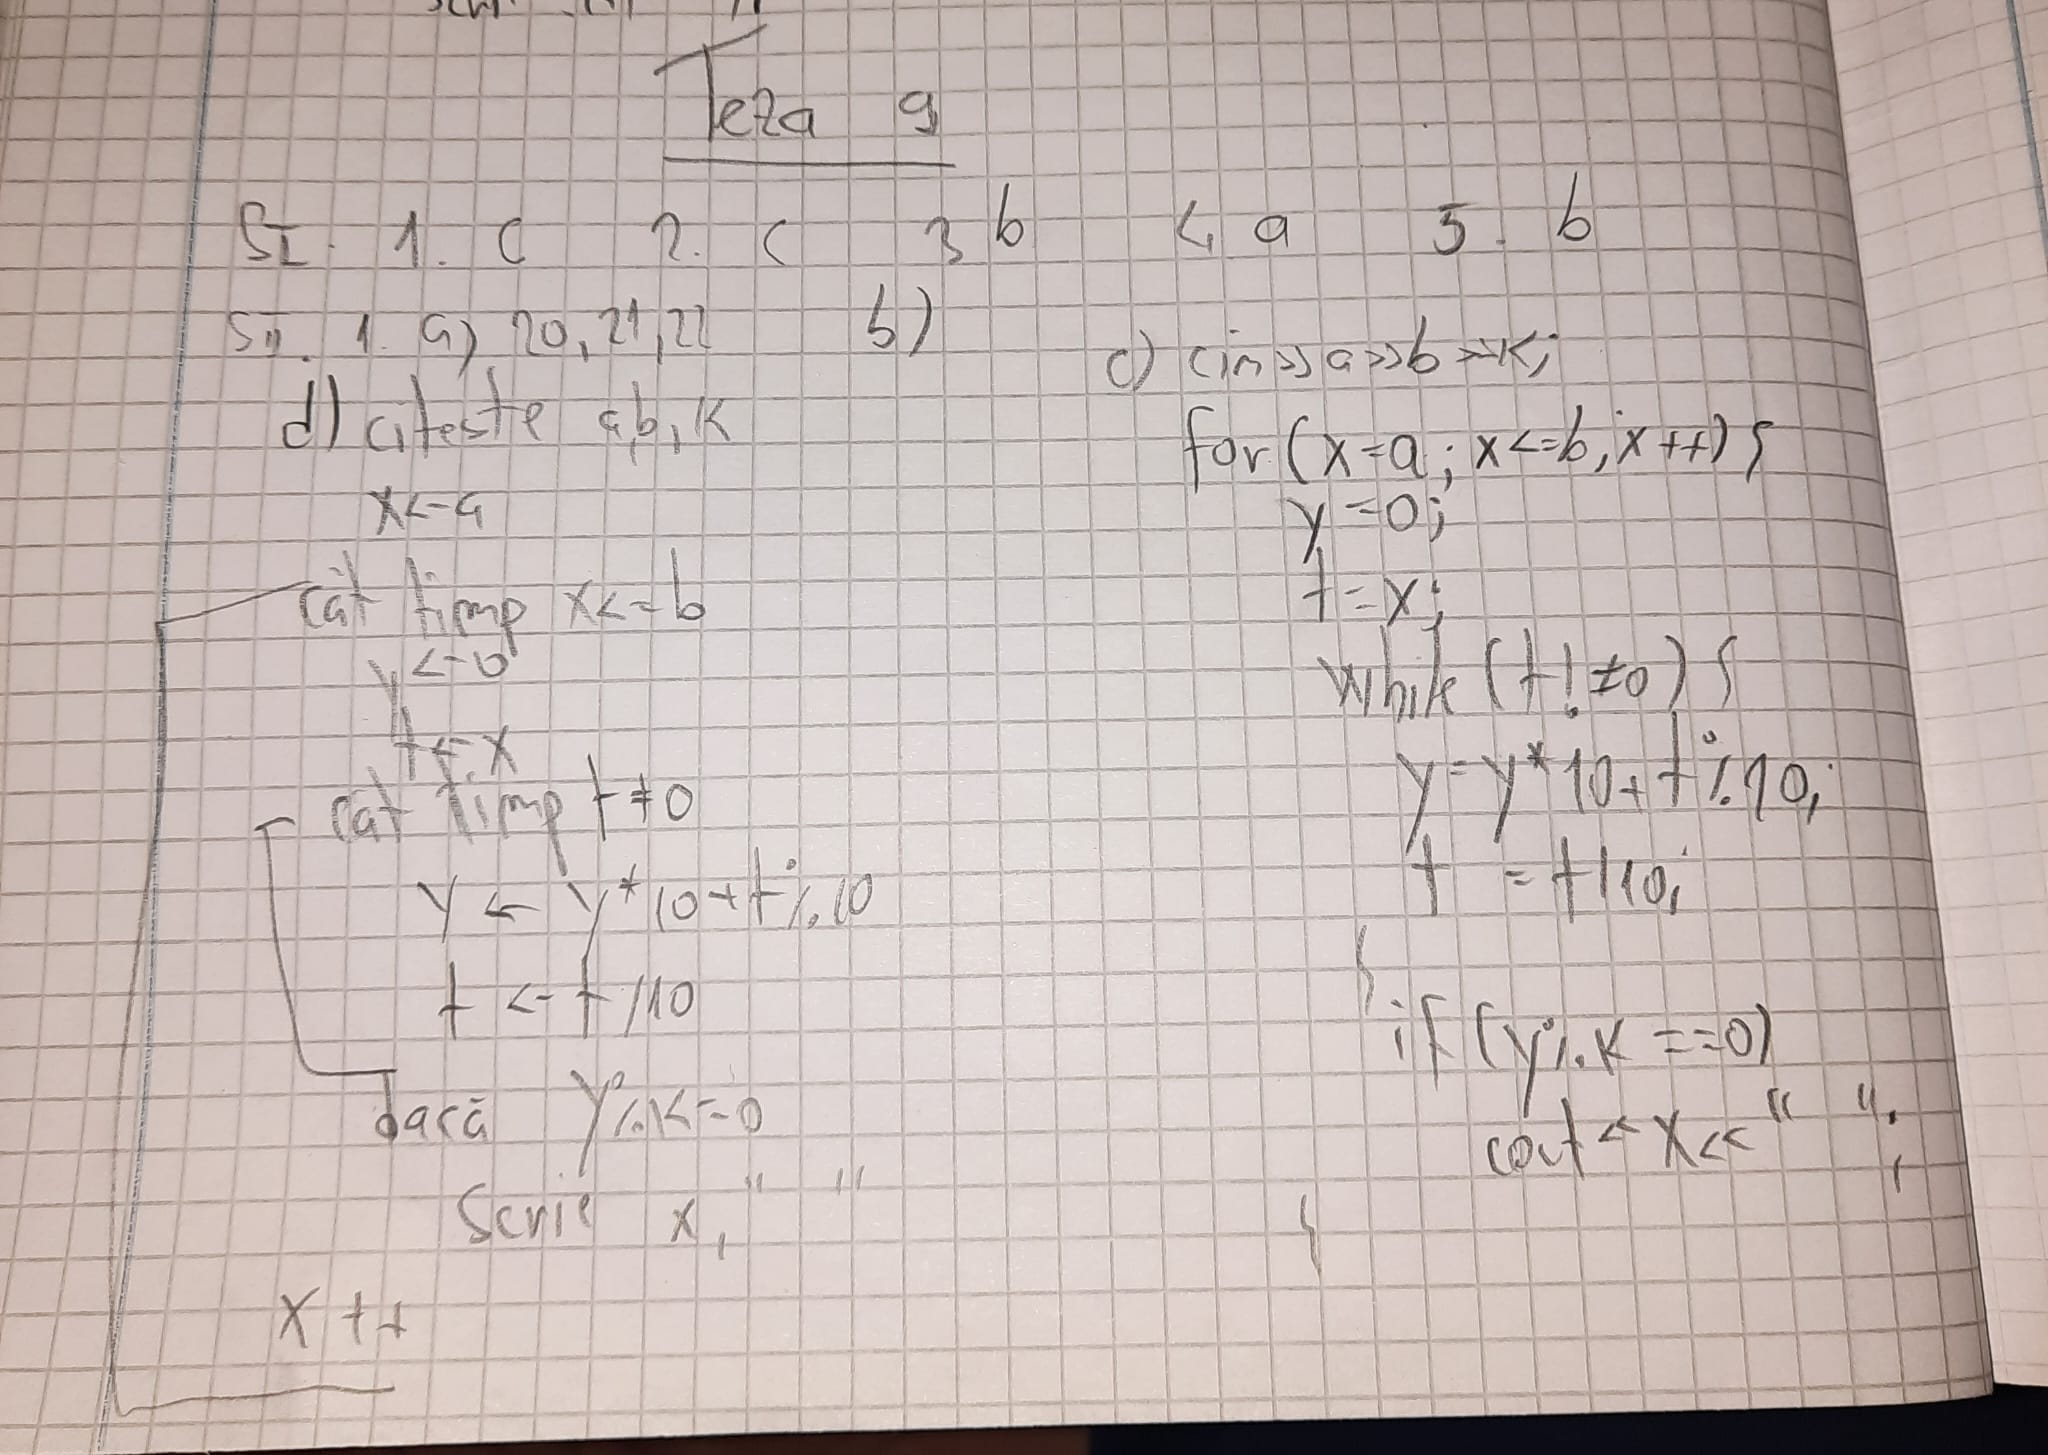 Teza 9
SI. 1. c 2. c 3 b 4 a 5. b
SII. 1. a) 20, 21, 22 b)
d) citeste a,b,k
x<-a
cât timp x<=b
y<-0
t<-x
cât timp t≠0
y <- y*10+t%10
t <- t/10
dacă y%k=0
Scrie x, " "
x++
c) cin>>a>>b>>k;
for(x=a; x<=b; x++){
y=0;
t=x;
while (t!≠0) {
y=y*10+t%10;
t = t/10;
}
if (y%k==0)
cout<<x<<" ";
}